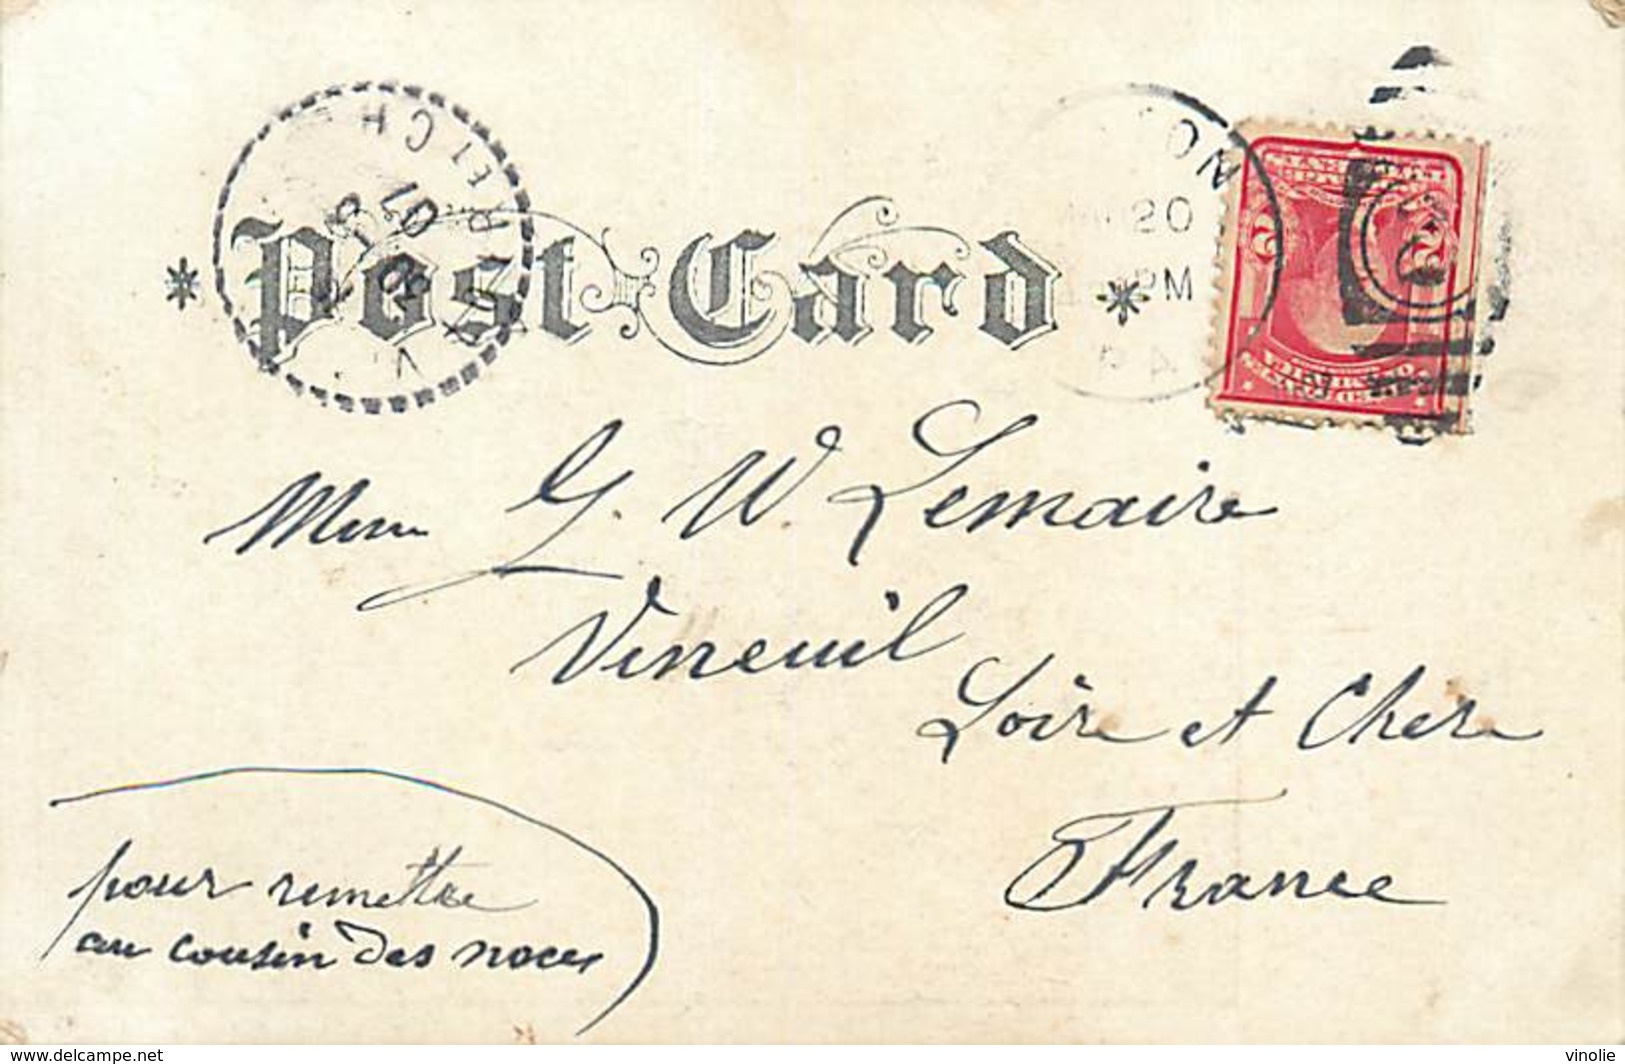 * Post Card *
20
PM
PA
01
G. W Lemaire
Vineuil
Loir et Cher
France
pour remettre
au cousin des noces
www.delcampe.net
vinolie